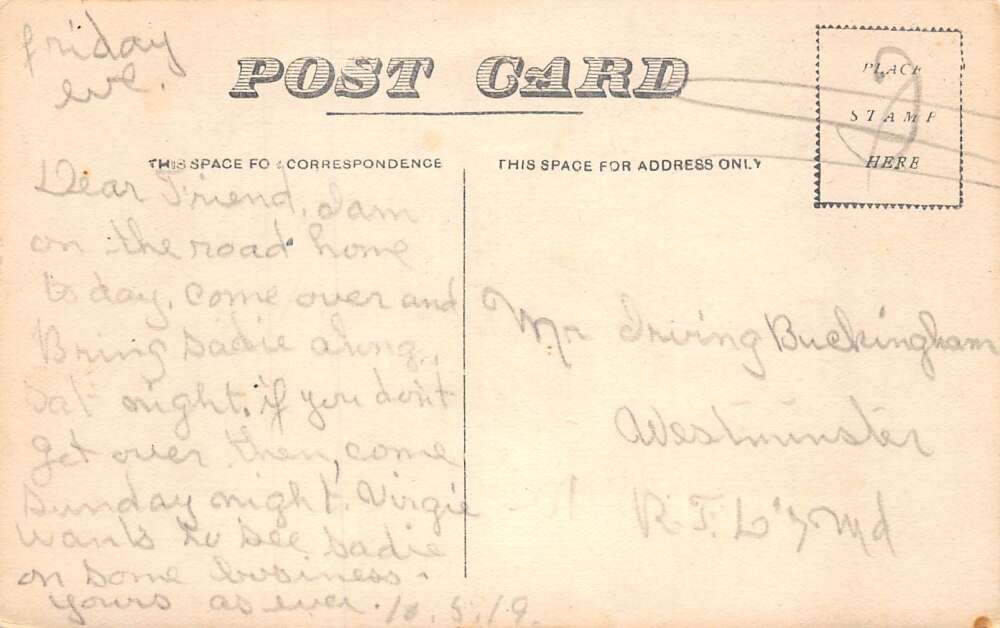 friday
eve.
POST CARD
PLACE
STAMP
HERE
THIS SPACE FOR CORRESPONDENCE
THIS SPACE FOR ADDRESS ONLY
Dear Friend, I am
on the road home
to day, come over and
Bring Sadie along,
Sat night, if you don't
get over then, come
Sunday night. Virgie
wants to see Sadie
on some business.
yours as ever.
Mr Irving Buckingham
Westminster
Md